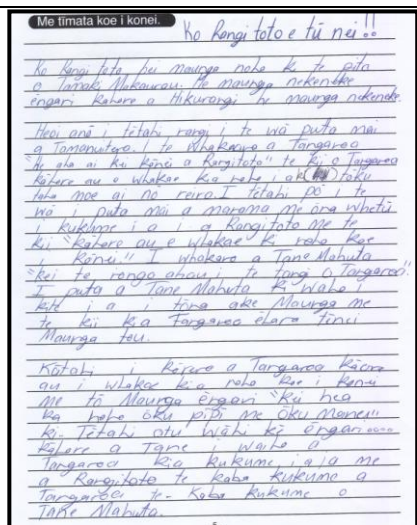 Me tīmata koe i konei.
Ko Rangitoto e tū nei!!
Ko Rangi toto hei maunga noho ki te pito
o Tamaki Makaurau. He maunga nekeneke
engari kahore a Hikurangi he maunga nekeneke.
Heoi anō i tētahi rangi i te wā puta mai
a Tamanuitera. I te whakaaro a Tangaroa
"He aha ai kei kōnei a Rangitoto" te ki o Tangaroa
kāhore au e whakae kia noho i a k tōku
noho moe ai nō reira. I tētahi pō i te
wā i puta mai a marama me ōna whetū
i kukume i a i a Rangitoto me te
kii "kahore au e whakae ki noho koe
kōnei." I whakaro a Tane Mahuta
"kei te rongo ahau i te tangi o Tangaroa".
I puta a Tane Mahuta ki waho i
kite i a i tōna ake Maunga me
te kii kia Tangaroa ēhara tēnei
Maunga teu.
Kātahi i kōrero a Tangaroa kāore
au i whakae kia noho koe i konei
me tō Maunga ēngari "Kei hea
ka noho ōku pipi me ōku manei"
ki. Tētahi otu wāhi kē ēngari....
kāhore a Tane i waiho a
Tangaroa kia kukume i a ia me
a Rangitoto te kaha kukume a
Tangaroa te - Kaha kukume o
Tane Mahuta.